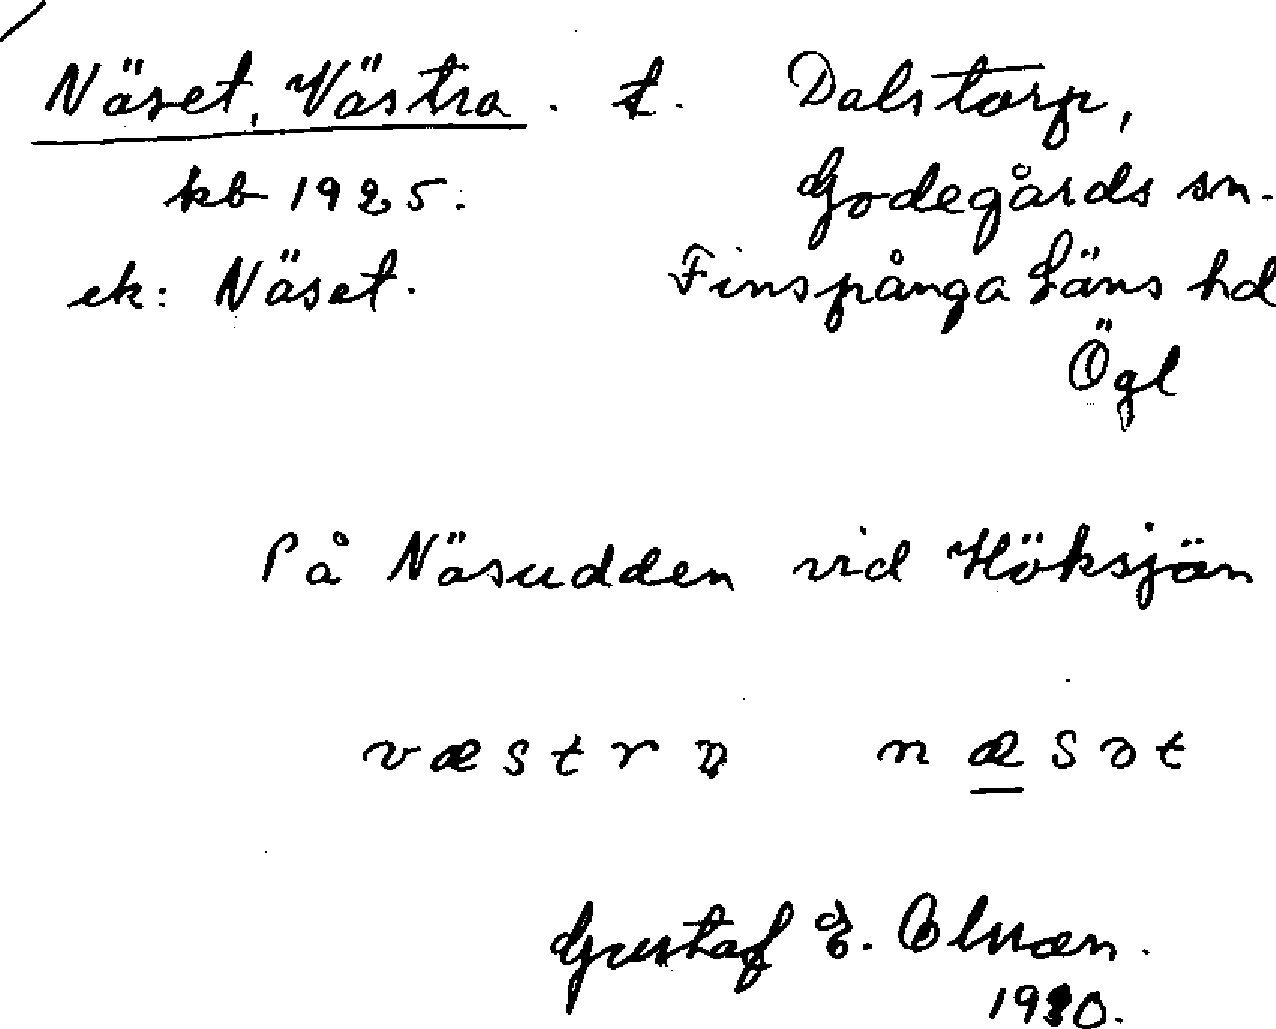 Näset, Västra. t. Dalstorp,
kb 1925. Godegårds sn.
ek: Näset. Finspånga Läns hd
Ögl
På Näsudden vid Höksjön
væstrɒ næsət
Gustaf E.